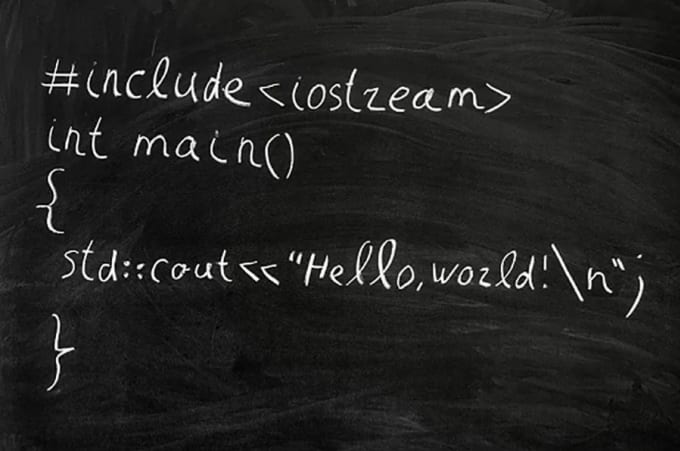 #include<iostream>
int main()
{
std::cout<<"Hello, world!\n";
}